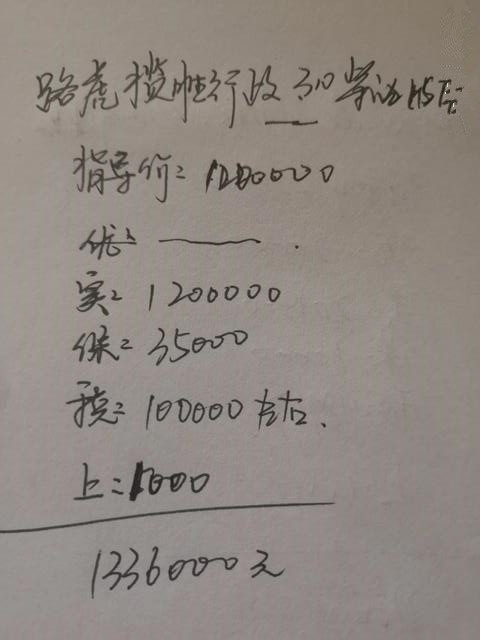 路虎揽胜行政 3.0 掌心 HSE
指导价: 1200000
优: ——.
实: 1200000
保: 35000
税: 100000左右、
上: 1000
1336000元